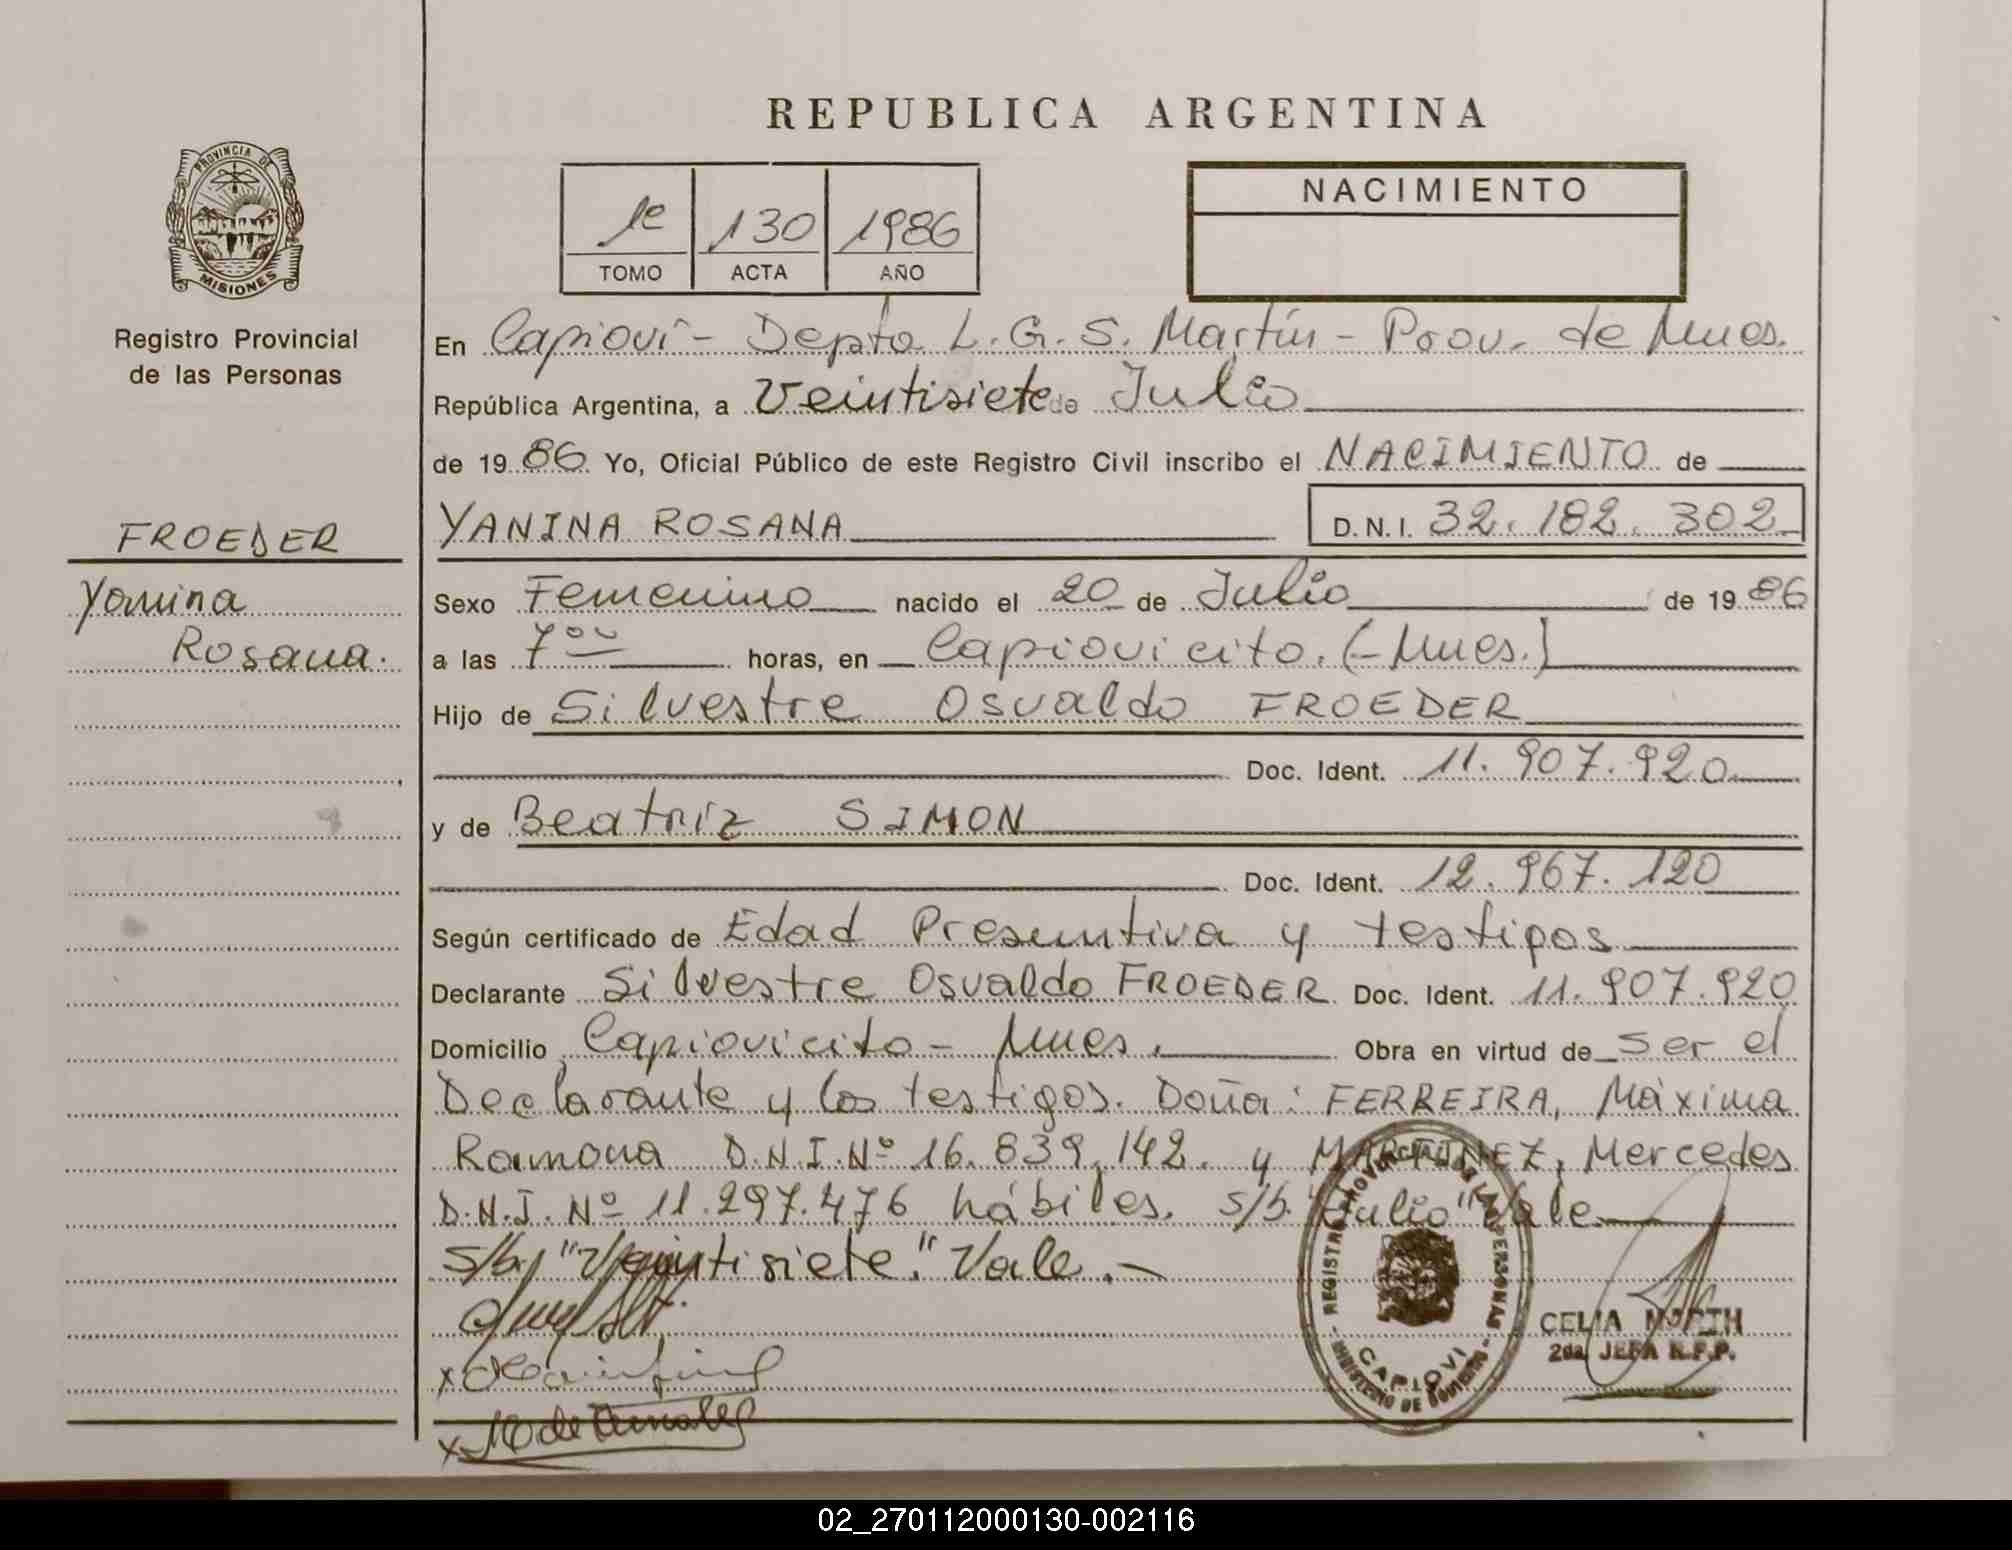 REPUBLICA ARGENTINA
PROVINCIA DE
MISIONES
Registro Provincial
de las Personas
1º 130 1986
TOMO ACTA AÑO
NACIMIENTO
En Capioví - Depto L.G.S. Martín - Prov. de Mnes.
República Argentina, a Veintisiete de Julio
de 1986 Yo, Oficial Público de este Registro Civil inscribo el NACIMIENTO de
FROEDER
YANINA ROSANA D.N.I. 32.182.302
Yanina
Rosana.
Sexo Femenino nacido el 20 de Julio de 1986
a las 7ºº horas, en Capiovicito. (-Mnes.)
Hijo de Silvestre Osvaldo FROEDER
Doc. Ident. 11.907.920
y de Beatriz SIMON
Doc. Ident. 12.967.120
Según certificado de Edad Presuntiva y testigos
Declarante Silvestre Osvaldo FROEDER Doc. Ident. 11.907.920
Domicilio Capiovicito - Mnes. Obra en virtud de ser el
Declarante y los testigos. Doña: FERREIRA, Máxima
Ramona D.N.I. Nº 16.839.142. y MARTINEZ, Mercedes
D.N.I. Nº 11.297.476 hábiles. s/b. "Julio" Vale
s/b, "Veintisiete." Vale.-
REGISTRO PROVINCIAL DE LAS PERSONAS
CAPIOVI
MINISTERIO DE GOBIERNO
CELIA
2da JEFA R.P.P.
02_270112000130-002116